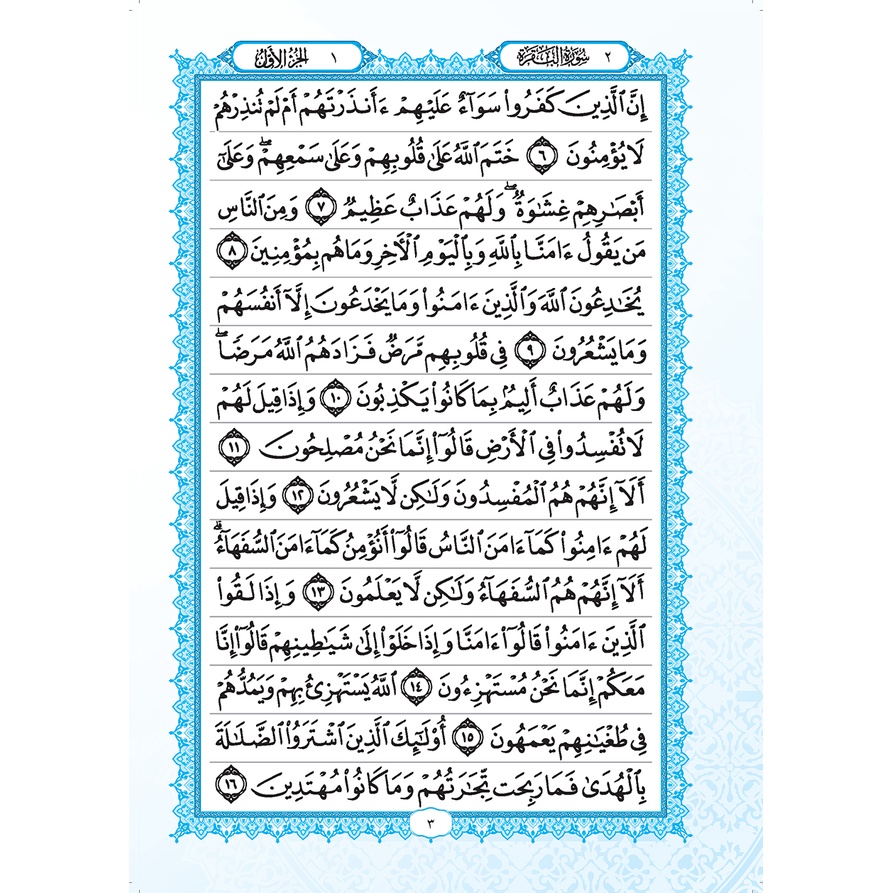 ٢ سُورَةُ البَقَرَةِ
الجُزءُ الأَوَّلُ ١
إِنَّ ٱلَّذِينَ كَفَرُواْ سَوَآءٌ عَلَيۡهِمۡ ءَأَنذَرۡتَهُمۡ أَمۡ لَمۡ تُنذِرۡهُمۡ
لَا يُؤۡمِنُونَ ٦ خَتَمَ ٱللَّهُ عَلَىٰ قُلُوبِهِمۡ وَعَلَىٰ سَمۡعِهِمۡۖ وَعَلَىٰٓ
أَبۡصَٰرِهِمۡ غِشَٰوَةٞۖ وَلَهُمۡ عَذَابٌ عَظِيمٞ ٧ وَمِنَ ٱلنَّاسِ
مَن يَقُولُ ءَامَنَّا بِٱللَّهِ وَبِٱلۡيَوۡمِ ٱلۡأٓخِرِ وَمَا هُم بِمُؤۡمِنِينَ ٨
يُخَٰدِعُونَ ٱللَّهَ وَٱلَّذِينَ ءَامَنُواْ وَمَا يَخۡدَعُونَ إِلَّآ أَنفُسَهُمۡ
وَمَا يَشۡعُرُونَ ٩ فِي قُلُوبِهِم مَّرَضٞ فَزَادَهُمُ ٱللَّهُ مَرَضٗاۖ
وَلَهُمۡ عَذَابٌ أَلِيمُۢ بِمَا كَانُواْ يَكۡذِبُونَ ١٠ وَإِذَا قِيلَ لَهُمۡ
لَا تُفۡسِدُواْ فِي ٱلۡأَرۡضِ قَالُوٓاْ إِنَّمَا نَحۡنُ مُصۡلِحُونَ ١١
أَلَآ إِنَّهُمۡ هُمُ ٱلۡمُفۡسِدُونَ وَلَٰكِن لَّا يَشۡعُرُونَ ١٢ وَإِذَا قِيلَ
لَهُمۡ ءَامِنُواْ كَمَآ ءَامَنَ ٱلنَّاسُ قَالُوٓاْ أَنُؤۡمِنُ كَمَآ ءَامَنَ ٱلسُّفَهَآءُۗ
أَلَآ إِنَّهُمۡ هُمُ ٱلسُّفَهَآءُ وَلَٰكِن لَّا يَعۡلَمُونَ ١٣ وَإِذَا لَقُواْ
ٱلَّذِينَ ءَامَنُواْ قَالُوٓاْ ءَامَنَّا وَإِذَا خَلَوۡاْ إِلَىٰ شَيَٰطِينِهِمۡ قَالُوٓاْ إِنَّا
مَعَكُمۡ إِنَّمَا نَحۡنُ مُسۡتَهۡزِءُونَ ١٤ ٱللَّهُ يَسۡتَهۡزِئُ بِهِمۡ وَيَمُدُّهُمۡ
فِي طُغۡيَٰنِهِمۡ يَعۡمَهُونَ ١٥ أُوْلَٰٓئِكَ ٱلَّذِينَ ٱشۡتَرَوُاْ ٱلضَّلَٰلَةَ
بِٱلۡهُدَىٰ فَمَا رَبِحَت تِّجَٰرَتُهُمۡ وَمَا كَانُواْ مُهۡتَدِينَ ١٦
٣